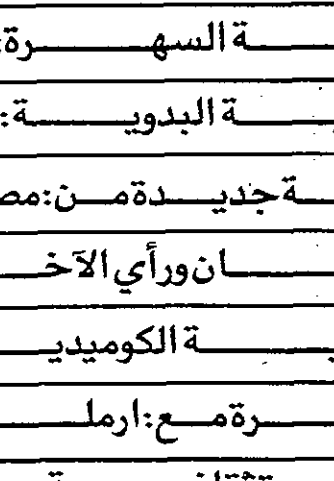 ـة السهـــرة:
ـة البدويـــة:
ـة جديـــدة مـــن: مصـ
ـان ورأي الآخـ
ـة الكوميديـ
ـرة مـــع: ارملـ